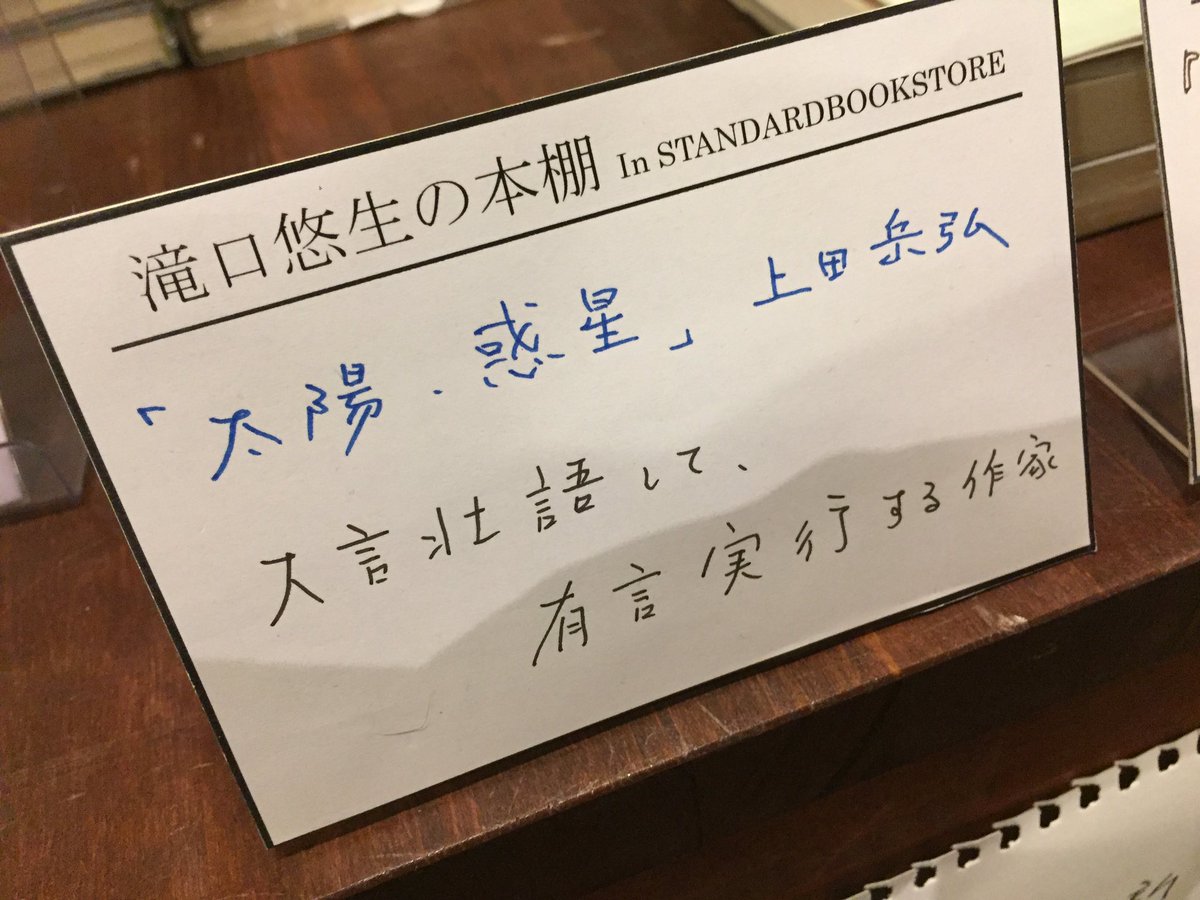 滝口悠生の本棚 In STANDARDBOOKSTORE
「太陽・惑星」 上田岳弘
大言壮語して、
有言実行する作家